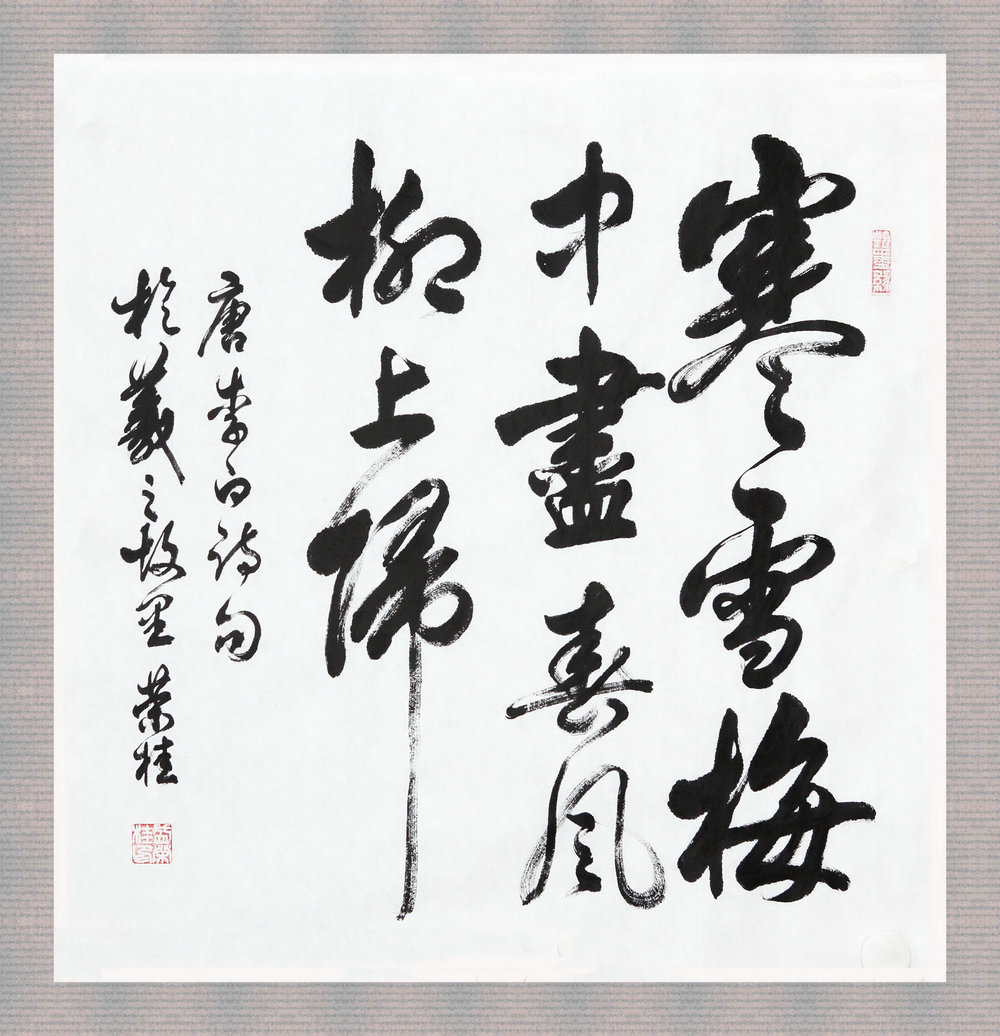 寒雪梅
中盡春風
柳上歸
唐李白詩句
於羲之故里榮桂